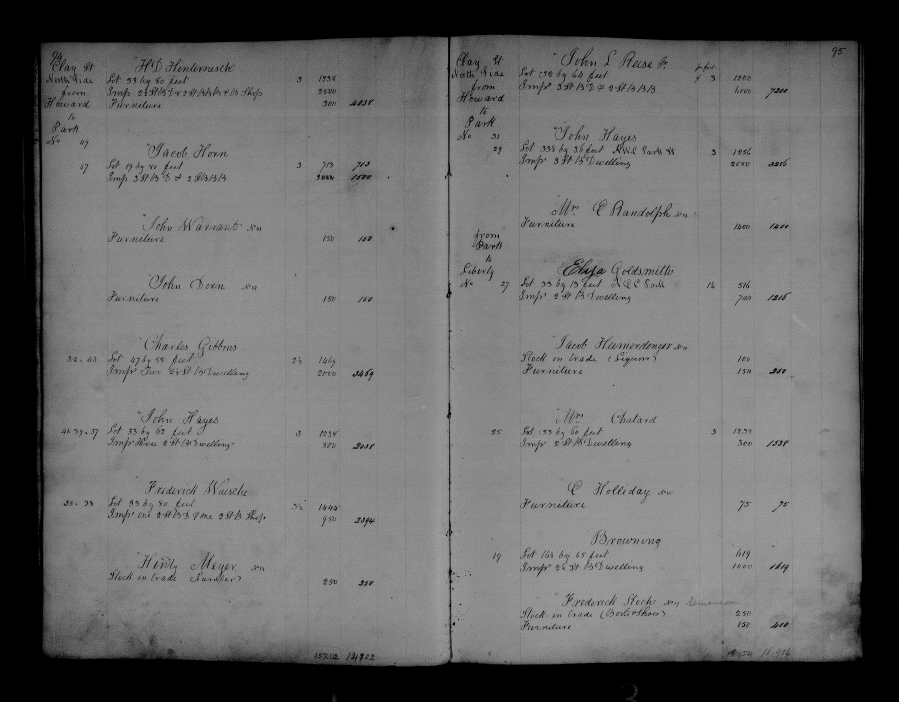 94
Clay St
North Side
from
Howard
to
Park
No 49
H D Hinternesch
Lot 33 by 80 feet 3 1238
Imp 2½ St B D & 2 St B B B & B Shop 2500
Furniture 300 4038
Jacob Horn
47 Lot 19 by 80 feet 3 713 713
Imp 3 St B D & 2 St B B B 1500
John Warrant
Furniture 150 150
John Dorn
Furniture 150 150
Charles Gibbons
Lot 47 by 58 feet 2½ 1469
Imps Two 2½ St B Dwelling 2000 3469
John Hayes
41 39 - 37 Lot 33 by 62 feet 3 1238
Imps Three 2 St B Dwelling 800 2038
Frederick Waesche
35 - 33 Lot 33 by 80 feet 3½ 1444
Imps one 2 St B D & one 2 St B Shop 950 2394
Henry Meyer
Stock in trade (Lumber) 250 250
95
Clay St
North Side
from
Howard
to
Park
No 31
John L Reese Jr
Lot by 64 feet 3 1200
Imps 3 St B D & 2 St B B B 6000 7200
John Hayes
29 Lot 33½ by 36 feet N.W.C Park St 3 1256
Imps 3 St B Dwelling 2000 3256
Mrs C Randolph
Furniture 1400 1400
from
Park
to
Liberty
No 27
Eliza Goldsmith
Lot 33 by 13 feet N.E.C Park 16 516
Imps 2 St B Dwelling 700 1216
Jacob Hamerdenger
Stock in trade (Liquors) 100
Furniture 150 250
Mrs Chatard
25 Lot 33 by 60 feet 3 1238
Imps 2 St B Dwelling 300 1538
C Holliday
Furniture 75 75
Browning
19 Lot 16½ by 65 feet 619
Imps 2½ St B Dwelling 1000 1619
Frederick Stock
Stock in trade (Boots & Shoes) 250
Furniture 150 400